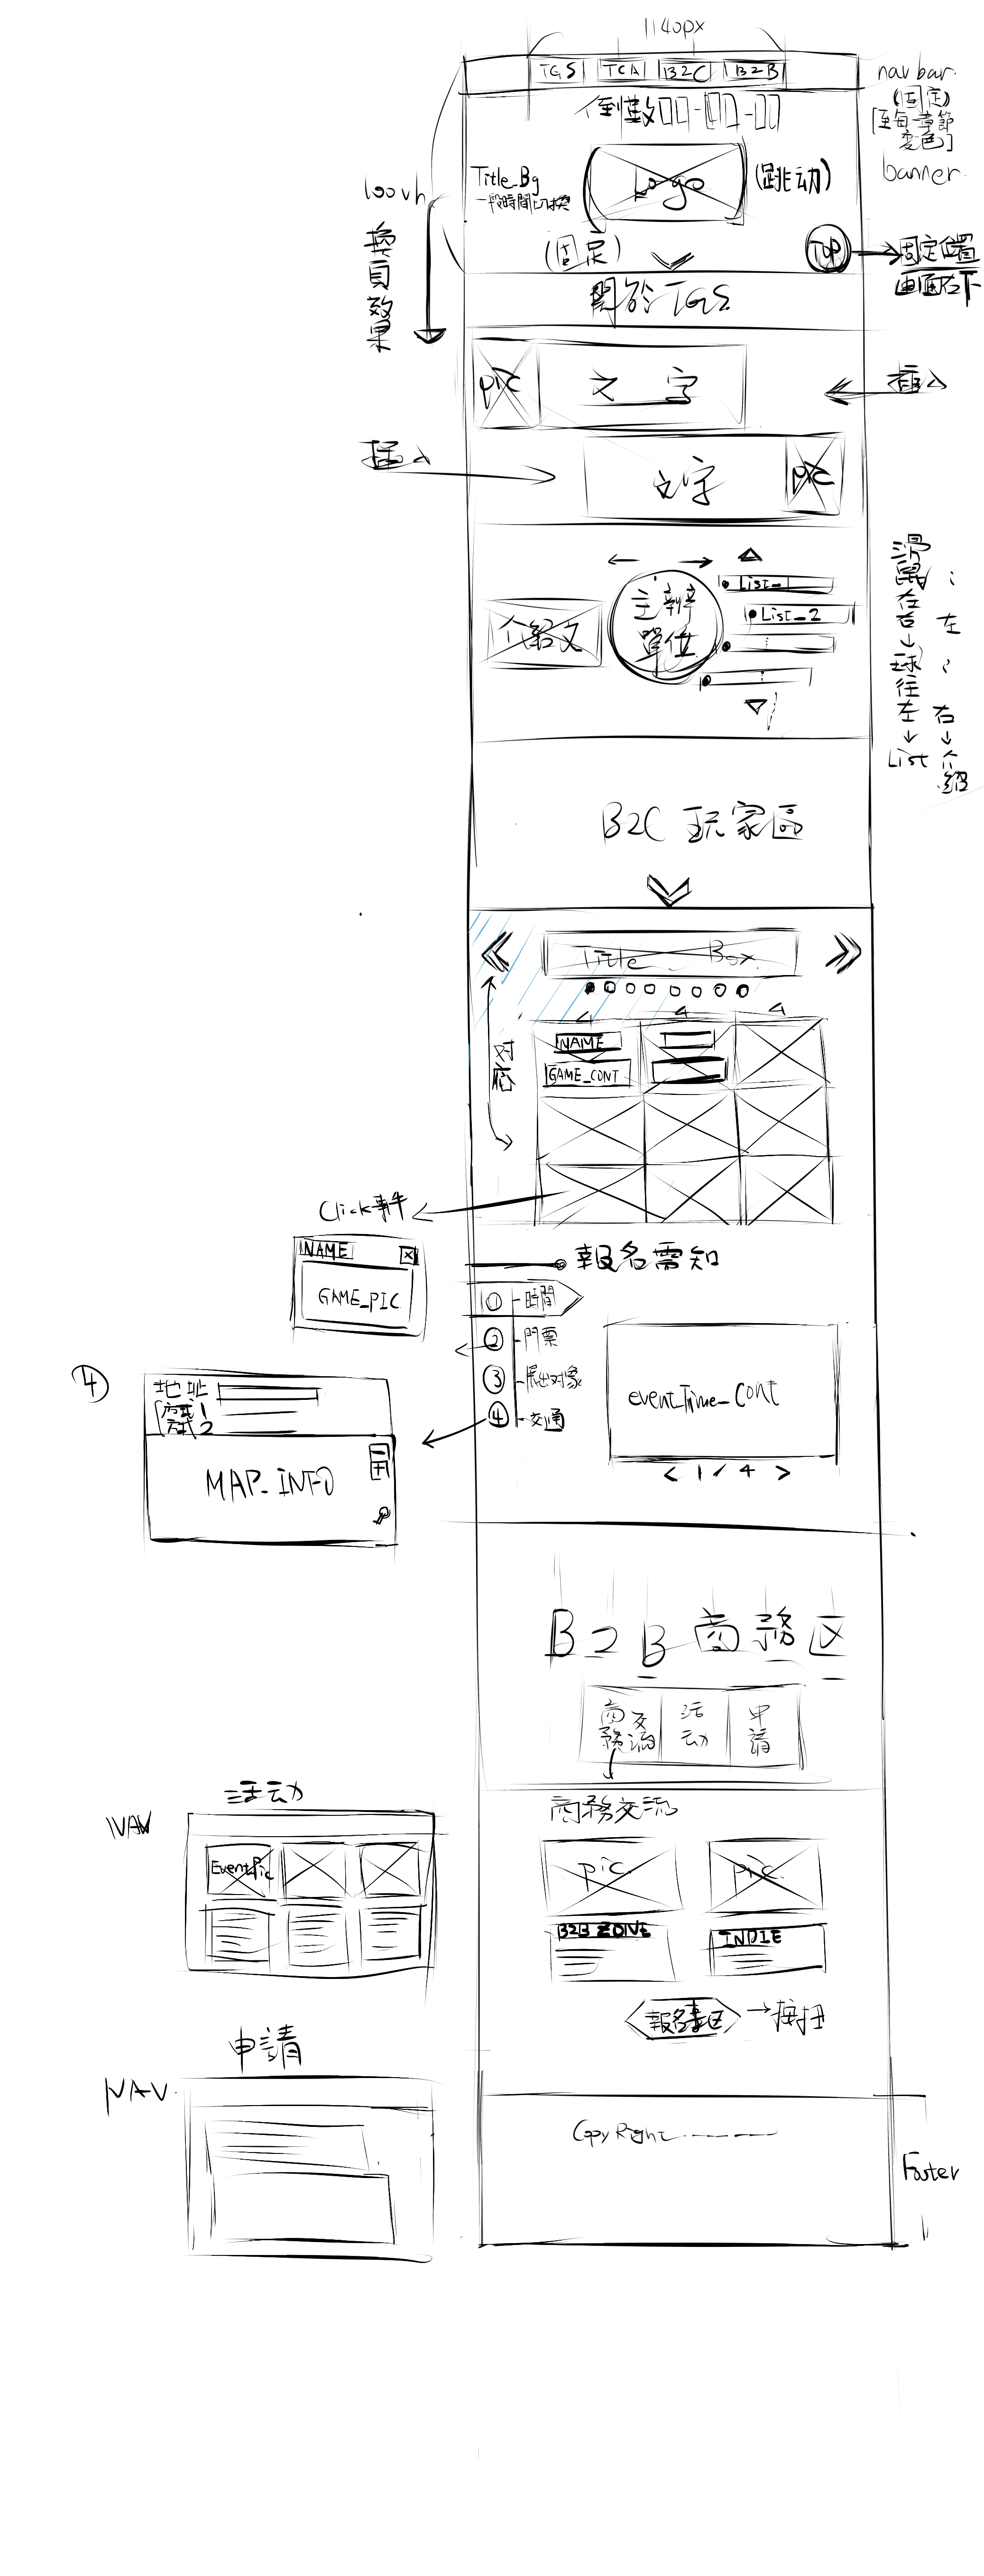 1140px
TGS TCA B2C B2B
navbar.
(固定)
[至每章節
變色]
倒數00-00-00
banner.
100vh
換頁效果
Title_Bg
一段時間切換
Logo
(跳动)
(固定)
TOP
固定位置
画面右下
關於TGS
pic
文字
插入
插入
文字
pic
介紹文
主辦
單位
List_1
List_2
滑鼠在右→球往左→List
: 左 : 右→介紹
B2C 玩家區
Title_Box
对應
NAME
GAME_CONT
Click事件
NAME
X
GAME_PIC
報名需知
① 時間
② 門票
③ 展出対象
④ 交通
eventTime_Cont
< 1 / 4 >
④
地址
方式1
方式2
MAP_INFO
B2B商務区
商務交流
活动
申請
商務交流
pic
pic
B2B ZONE
INDIE
報名專区
→按扭
活动
NAV
EventPic
申請
NAV.
CopyRight
Footer